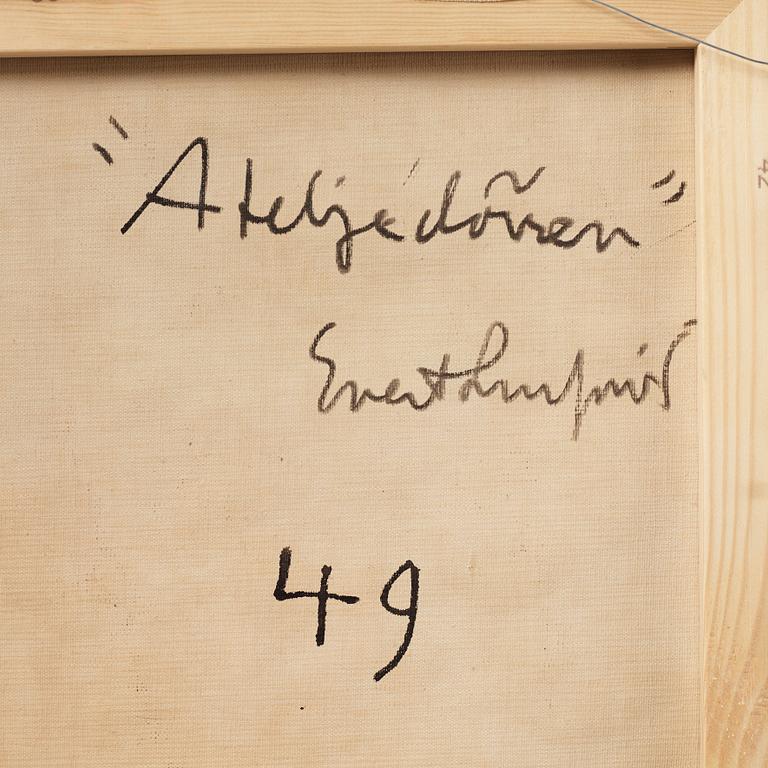 "Ateljédörren"
Evert Lundquist
49
42